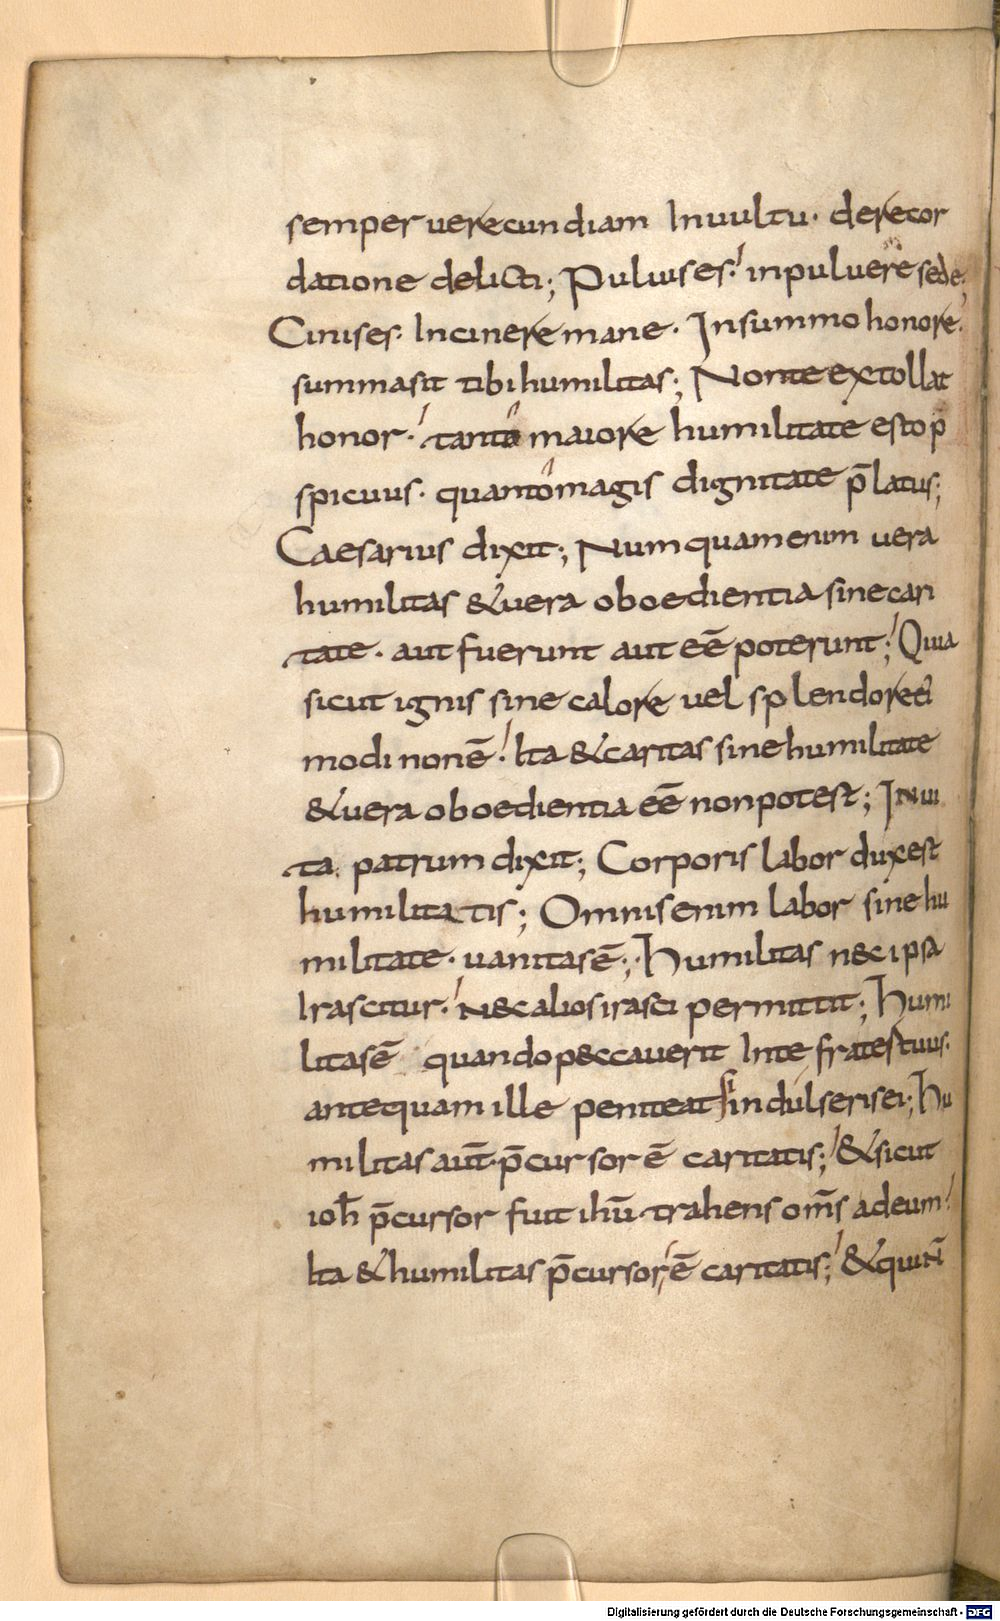 semper uerecundiam Inuultu· derecor
datione delicti; Puluises·' inpuluere sede;
Cinises· Incinere mane· Insummo honore·
summasit tibi humilitas; Nonte extollat
honor·' tanto maiore humilitate esto p̄
spicuus· quanto magis dignitate p̄latus;
Caesarius dixit; Numquam enim uera
humilitas &uera oboedientia sinecari
tate· aut fuerunt aut eē poterunt; Quia
sicut ignis sine calore uel splendore ei'
modi nonē·' Ita &caritas sine humilitate
&uera oboedientia eē nonpotest; Inui
ta patrum dixit; Corporis labor duxest
humilitatis; Omnisenim labor sinehu
militate· uanitasē; Humilitas n&cipsa
Irascitur·' N&calios irasci permittit; Humi
litasē quandop&ccauerit Inte fratestuus·
antequam ille peniteat si indulserisei; Hu
militas aut̄ p̄cursor ē caritatis; &sicut
ioh̄ p̄cursor fuit ihū trahens om̄s adeum·'
Ita &humilitas p̄cursor ē caritatis; &quin̄
Digitalisierung gefördert durch die Deutsche Forschungsgemeinschaft - DFG